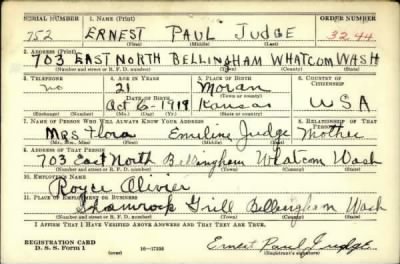 SERIAL NUMBER 1. NAME (Print) ORDER NUMBER
752 ERNEST PAUL JUDGE 3244
(First) (Middle) (Last)
2. ADDRESS (Print)
703 EAST NORTH BELLINGHAM WHATCOM WASH
(Number and street or R. F. D. number) (Town) (County) (State)
3. TELEPHONE 4. AGE IN YEARS 5. PLACE OF BIRTH 6. COUNTRY OF CITIZENSHIP
no 21 Moran
DATE OF BIRTH (Town or county)
Oct 6-1919 Kansas USA
(Mo.) (Day) (Yr.) (State or country)
7. NAME OF PERSON WHO WILL ALWAYS KNOW YOUR ADDRESS 8. RELATIONSHIP OF THAT PERSON
Mrs Flora Emiline Judge Mother
(Mr., Mrs., Miss) (First) (Middle) (Last)
9. ADDRESS OF THAT PERSON
703 East North Bellingham Whatcom Wash
(Number and street or R. F. D. number) (Town) (County) (State)
10. EMPLOYER'S NAME
Royce Olivier
11. PLACE OF EMPLOYMENT OR BUSINESS
Shamrock Grill Bellingham Wash
(Number and street or R. F. D. number) (Town) (County) (State)
I AFFIRM THAT I HAVE VERIFIED ABOVE ANSWERS AND THAT THEY ARE TRUE.
REGISTRATION CARD
D. S. S. Form 1 (over) 16-17105 Ernest Paul Judge
(Registrant's signature)